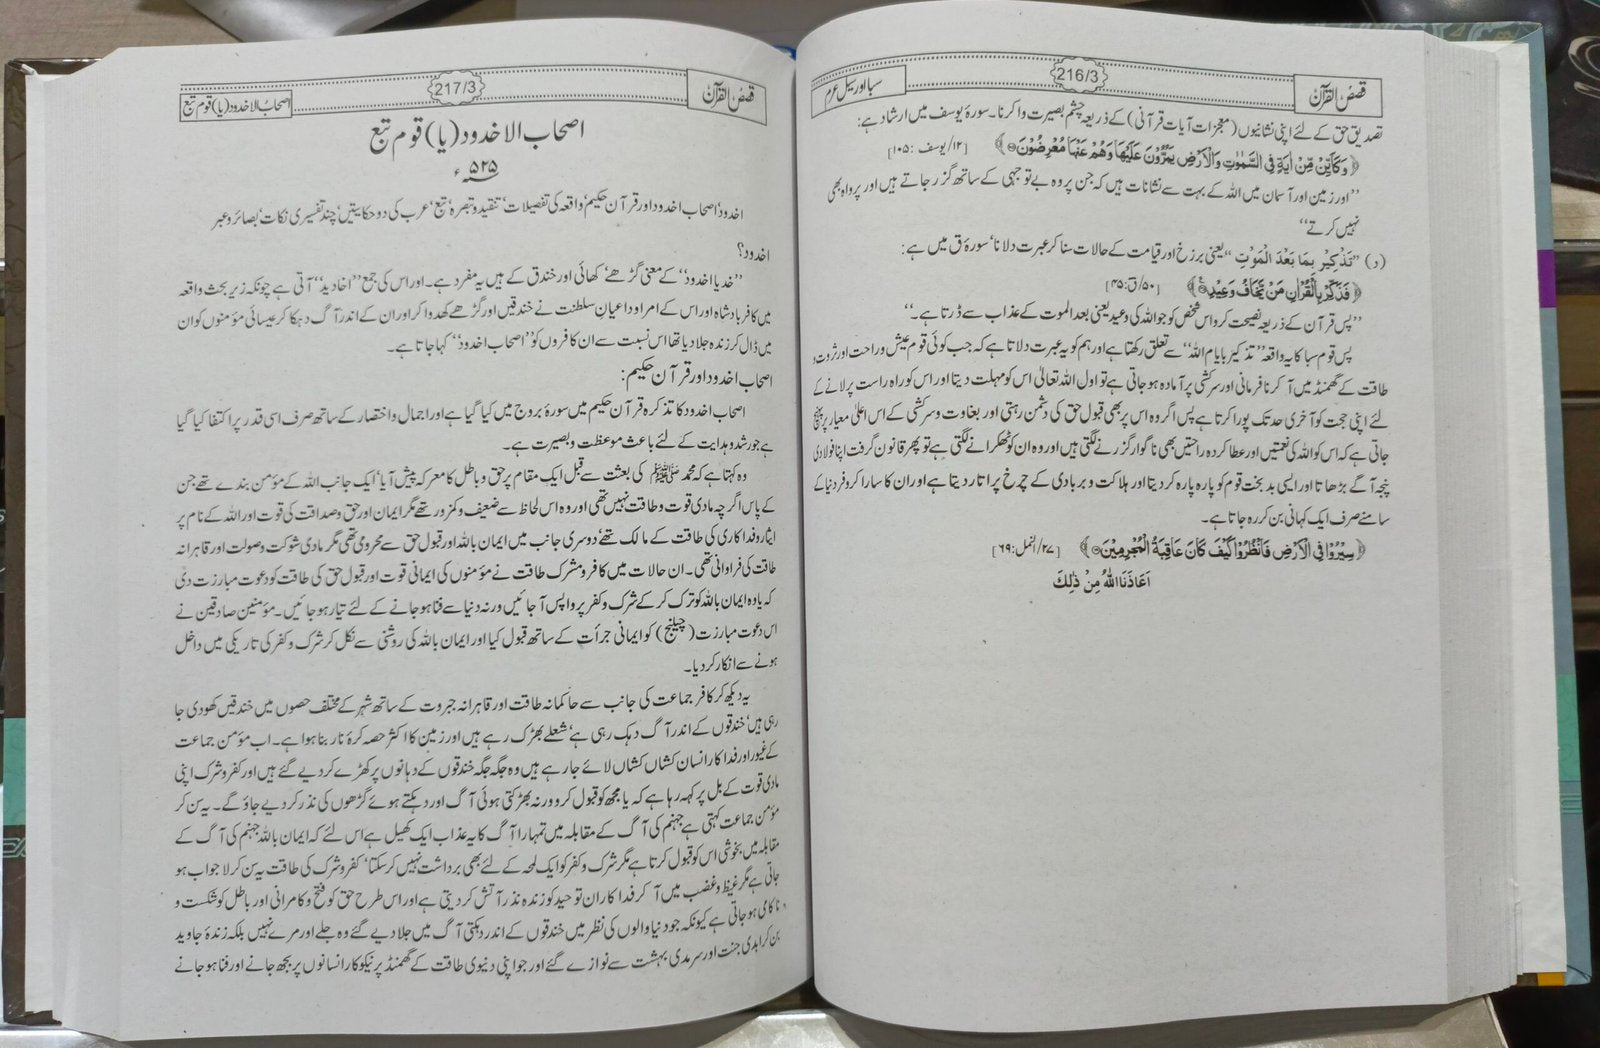 قصص القرآن
216/3
سبا اور سیل عرم
تصدیق حق کے لئے اپنی نشانیوں (معجزات آیات قرآنی) کے ذریعہ چشم بصیرت وا کرنا۔ سورۂ یوسف میں ارشاد ہے:
﴿وَكَاَيِّنْ مِّنْ اٰيَةٍ فِي السَّمٰوٰتِ وَالْاَرْضِ يَمُرُّوْنَ عَلَيْهَا وَهُمْ عَنْهَا مُعْرِضُوْنَ﴾ [۱۲/یوسف :۱۰۵]
’’اور زمین اور آسمان میں اللہ کے بہت سے نشانات ہیں کہ جن پر وہ بے توجہی کے ساتھ گزر جاتے ہیں اور پرواہ بھی
نہیں کرتے‘‘
(د) ’’تَذْکِیْرِ بِمَا بَعْدَ الْمَوْتِ‘‘ یعنی برزخ اور قیامت کے حالات سنا کر عبرت دلانا‘ سورۂ ق میں ہے:
﴿فَذَكِّرْ بِالْقُرْاٰنِ مَنْ يَّخَافُ وَعِيْدِ﴾ [۵۰/ق:۴۵]
’’پس قرآن کے ذریعہ نصیحت کرو اس شخص کو جو اللہ کی وعید یعنی بعد الموت کے عذاب سے ڈرتا ہے۔‘‘
پس قوم سبا کا یہ واقعہ ’’تذکیر بایام اللہ‘‘ سے تعلق رکھتا ہے اور ہم کو یہ عبرت دلاتا ہے کہ جب کوئی قوم عیش و راحت اور ثروت و
طاقت کے گھمنڈ میں آ کر نافرمانی اور سرکشی پر آمادہ ہو جاتی ہے تو اول اللہ تعالیٰ اس کو مہلت دیتا اور اس کو راہ راست پر لانے کے
لئے اپنی حجت کو آخری حد تک پورا کرتا ہے پس اگر وہ اس پر بھی قبول حق کی دشمن رہتی اور بغاوت و سرکشی کے اس اعلیٰ معیار پر پہنچ
جاتی ہے کہ اس کو اللہ کی نعمتیں اور عطا کردہ راحتیں بھی ناگوار گزرنے لگتی ہیں اور وہ ان کو ٹھکرانے لگتی ہے تو پھر قانون گرفت اپنا فولادی
پنجہ آگے بڑھاتا اور ایسی بدبخت قوم کو پارہ پارہ کر دیتا اور ہلاکت و بربادی کے چرخ پر اتار دیتا ہے اور ان کا سارا کروفر دنیا کے
سامنے صرف ایک کہانی بن کر رہ جاتا ہے۔
﴿سِيْرُوْا فِي الْاَرْضِ فَانْظُرُوْا كَيْفَ كَانَ عَاقِبَةُ الْمُجْرِمِيْنَ﴾ [۲۷/النمل:۶۹]
اَعَاذَنَا اللّٰهُ مِنْ ذٰلِكَ
قصص القرآن
217/3
اصحاب الاخدود (یا) قوم تبع
اصحاب الاخدود (یا) قوم تبع
۵۲۵ء
اخدود‘ اصحاب اخدود اور قرآن حکیم‘ واقعہ کی تفصیلات‘ تنقید و تبصرہ‘ تبع‘ عرب کی دو حکایتیں‘ چند تفسیری نکات‘ بصائر و عبر
اخدود؟
’’خد یا اخدود‘‘ کے معنی گڑھے‘ کھائی اور خندق کے ہیں یہ مفرد ہے۔ اور اس کی جمع ’’اخادید‘‘ آتی ہے چونکہ زیر بحث واقعہ
میں کافر بادشاہ اور اس کے امراء و اعیان سلطنت نے خندقیں اور گڑھے کھدوا کر اور ان کے اندر آگ دہکا کر عیسائی مؤمنوں کو ان
میں ڈال کر زندہ جلا دیا تھا اس نسبت سے ان کافروں کو ’’اصحاب اخدود‘‘ کہا جاتا ہے۔
اصحاب اخدود اور قرآن حکیم:
اصحاب اخدود کا تذکرہ قرآن حکیم میں سورۂ بروج میں کیا گیا ہے اور اجمال و اختصار کے ساتھ صرف اسی قدر پر اکتفا کیا گیا
ہے جو رشد و ہدایت کے لئے باعث موعظت و بصیرت ہے۔
وہ کہتا ہے کہ محمد ﷺ کی بعثت سے قبل ایک مقام پر حق و باطل کا معرکہ پیش آیا‘ ایک جانب اللہ کے مؤمن بندے تھے جن
کے پاس اگرچہ مادی قوت و طاقت نہیں تھی اور وہ اس لحاظ سے ضعیف و کمزور تھے مگر ایمان اور حق و صداقت کی قوت اور اللہ کے نام پر
ایثار و فدا کاری کی طاقت کے مالک تھے‘ دوسری جانب میں ایمان باللہ اور قبول حق سے محرومی تھی مگر مادی شوکت و صولت اور قاہرانہ
طاقت کی فراوانی تھی۔ ان حالات میں کافر و مشرک طاقت نے مؤمنوں کی ایمانی قوت اور قبول حق کی طاقت کو دعوت مبارزت دی
کہ یا وہ ایمان باللہ کو ترک کر کے شرک و کفر پر واپس آ جائیں ورنہ دنیا سے فنا ہو جانے کے لئے تیار ہو جائیں۔ مؤمنین صادقین نے
اس دعوت مبارزت (چیلنج) کو ایمانی جرأت کے ساتھ قبول کیا اور ایمان باللہ کی روشنی سے نکل کر شرک و کفر کی تاریکی میں داخل
ہونے سے انکار کر دیا۔
یہ دیکھ کر کافر جماعت کی جانب سے حاکمانہ طاقت اور قاہرانہ جبروت کے ساتھ شہر کے مختلف حصوں میں خندقیں کھودی جا
رہی ہیں‘ خندقوں کے اندر آگ دہک رہی ہے‘ شعلے بھڑک رہے ہیں اور زمین کا اکثر حصہ کرۂ نار بنا ہوا ہے۔ اب مؤمن جماعت
کے غیور اور فدا کار انسان کشاں کشاں لائے جا رہے ہیں وہ جگہ جگہ خندقوں کے دہانوں پر کھڑے کر دیے گئے ہیں اور کفر و شرک اپنی
مادی قوت کے بل پر کہہ رہا ہے کہ یا مجھ کو قبول کرو ورنہ بھڑکتی ہوئی آگ اور دہکتے ہوئے گڑھوں کی نذر کر دیے جاؤ گے۔ یہ سن کر
مؤمن جماعت کہتی ہے جہنم کی آگ کے مقابلہ میں تمہارا آگ کا یہ عذاب ایک کھیل ہے اس لئے کہ ایمان باللہ جہنم کی آگ کے
مقابلہ میں بخوشی اس کو قبول کرتا ہے مگر شرک و کفر کو ایک لمحہ کے لئے بھی برداشت نہیں کر سکتا‘ کفر و شرک کی طاقت یہ سن کر لاجواب ہو
جاتی ہے مگر غیظ و غضب میں آ کر فدا کاران توحید کو زندہ نذر آتش کر دیتی ہے اور اس طرح حق کو فتح و کامرانی اور باطل کو شکست و
ناکامی ہو جاتی ہے کیونکہ جو دنیا والوں کی نظر میں خندقوں کے اندر دہکتی آگ میں جلا دیے گئے وہ جلے اور مرے نہیں بلکہ زندۂ جاوید
بن کر ابدی جنت اور سرمدی بہشت سے نوازے گئے اور جو اپنی دنیوی طاقت کے گھمنڈ پر نیکوکار انسانوں پر بجھ جانے اور فنا ہو جانے